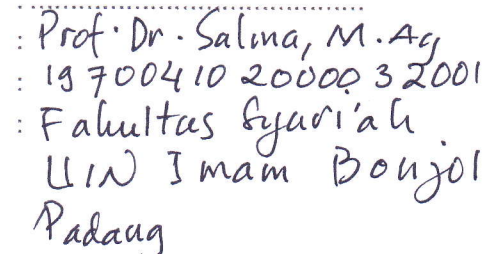 : Prof. Dr. Salma, M.Ag
: 19700410 200003 2001
: Fakultas Syari'ah
UIN Imam Bonjol
Padang